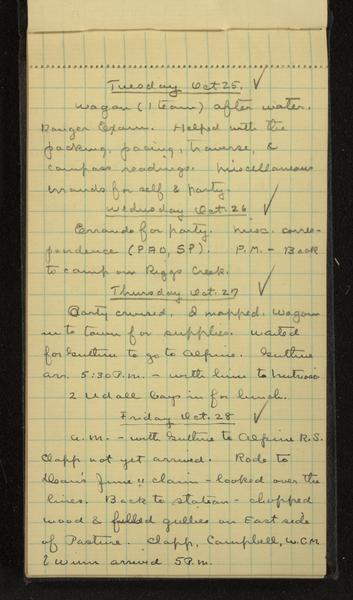 Tuesday Oct 25. ✓
Wagon (1 team) after water.
Ranger Exam. Helped with the
packing, pacing, traverse, &
compass readings. Miscellaneous
errands for self & party.
Wednesday Oct. 26 ✓
Errands for party. Misc. corres-
pondence (PAO, SP). P.M. - Back
to camp on Riggs Creek.
Thursday Oct. 27 ✓
Party cruised, I mapped. Wagon
in to town for supplies. Waited
for Guthrie to go to Alpine. Guthrie
arr. 5:30 P.m. - with him to Nutrioso
2 Udall boys in for lunch.
Friday Oct. 28 ✓
a.m. - with Guthrie to Alpine R.S.
Clapp not yet arrived. Rode to
June 11 claim - looked over the
lines. Back to station - chopped
wood & filled gullies on East side
of Pasture. Clapp, Campbell, W.C.M
& Winn arrived 5 P.m.